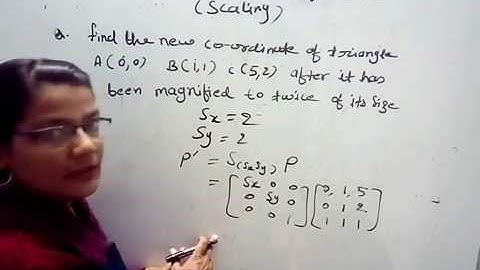 (Scaling)
Q. find the new co-ordinate of triangle
A(0,0) B(1,1) C(5,2) after it has
been magnified to twice of its size
Sx = 2
Sy = 2
P' = S(Sx,Sy) P
= [Sx 0 0 [0, 1, 5
0 Sy 0 0 1 2
0 0 1] 1 1 1]